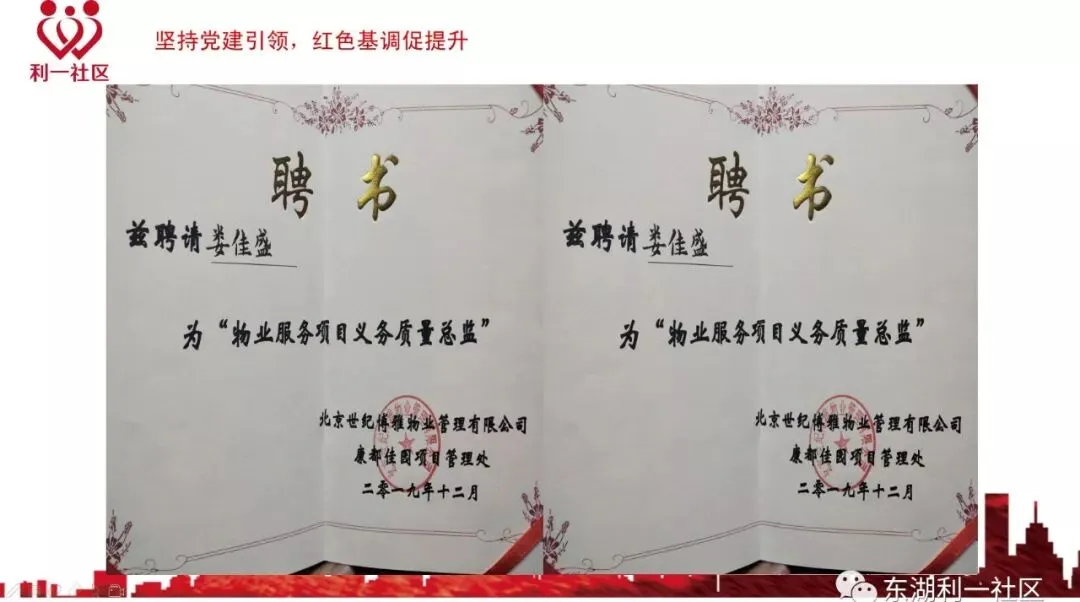 利一社区
坚持党建引领，红色基调促提升
聘 书
兹聘请娄佳盛
为“物业服务项目义务质量总监”
北京世纪博雅物业管理有限公司
康都佳园项目管理处
二零一九年十二月
聘 书
兹聘请娄佳盛
为“物业服务项目义务质量总监”
北京世纪博雅物业管理有限公司
康都佳园项目管理处
二零一九年十二月
东湖利一社区